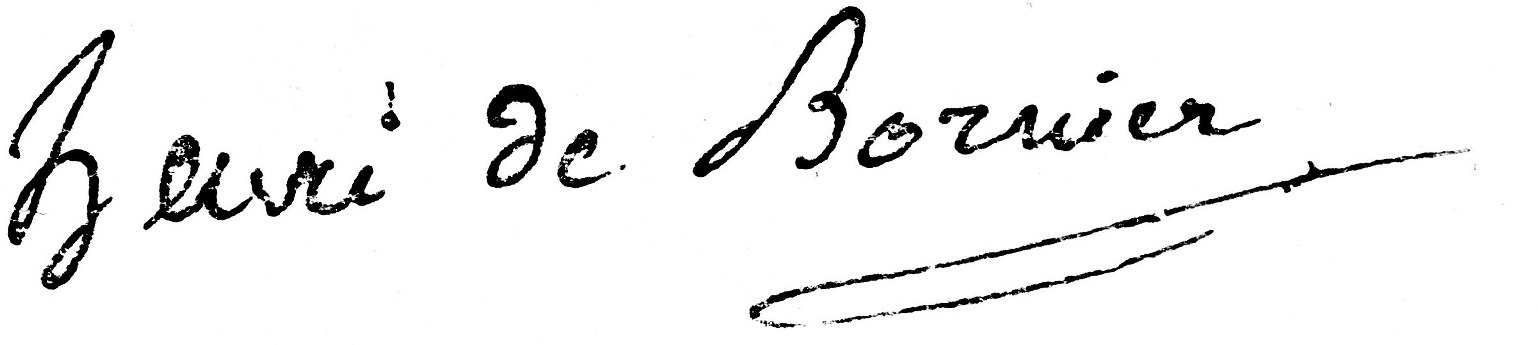 Henri de Bornier